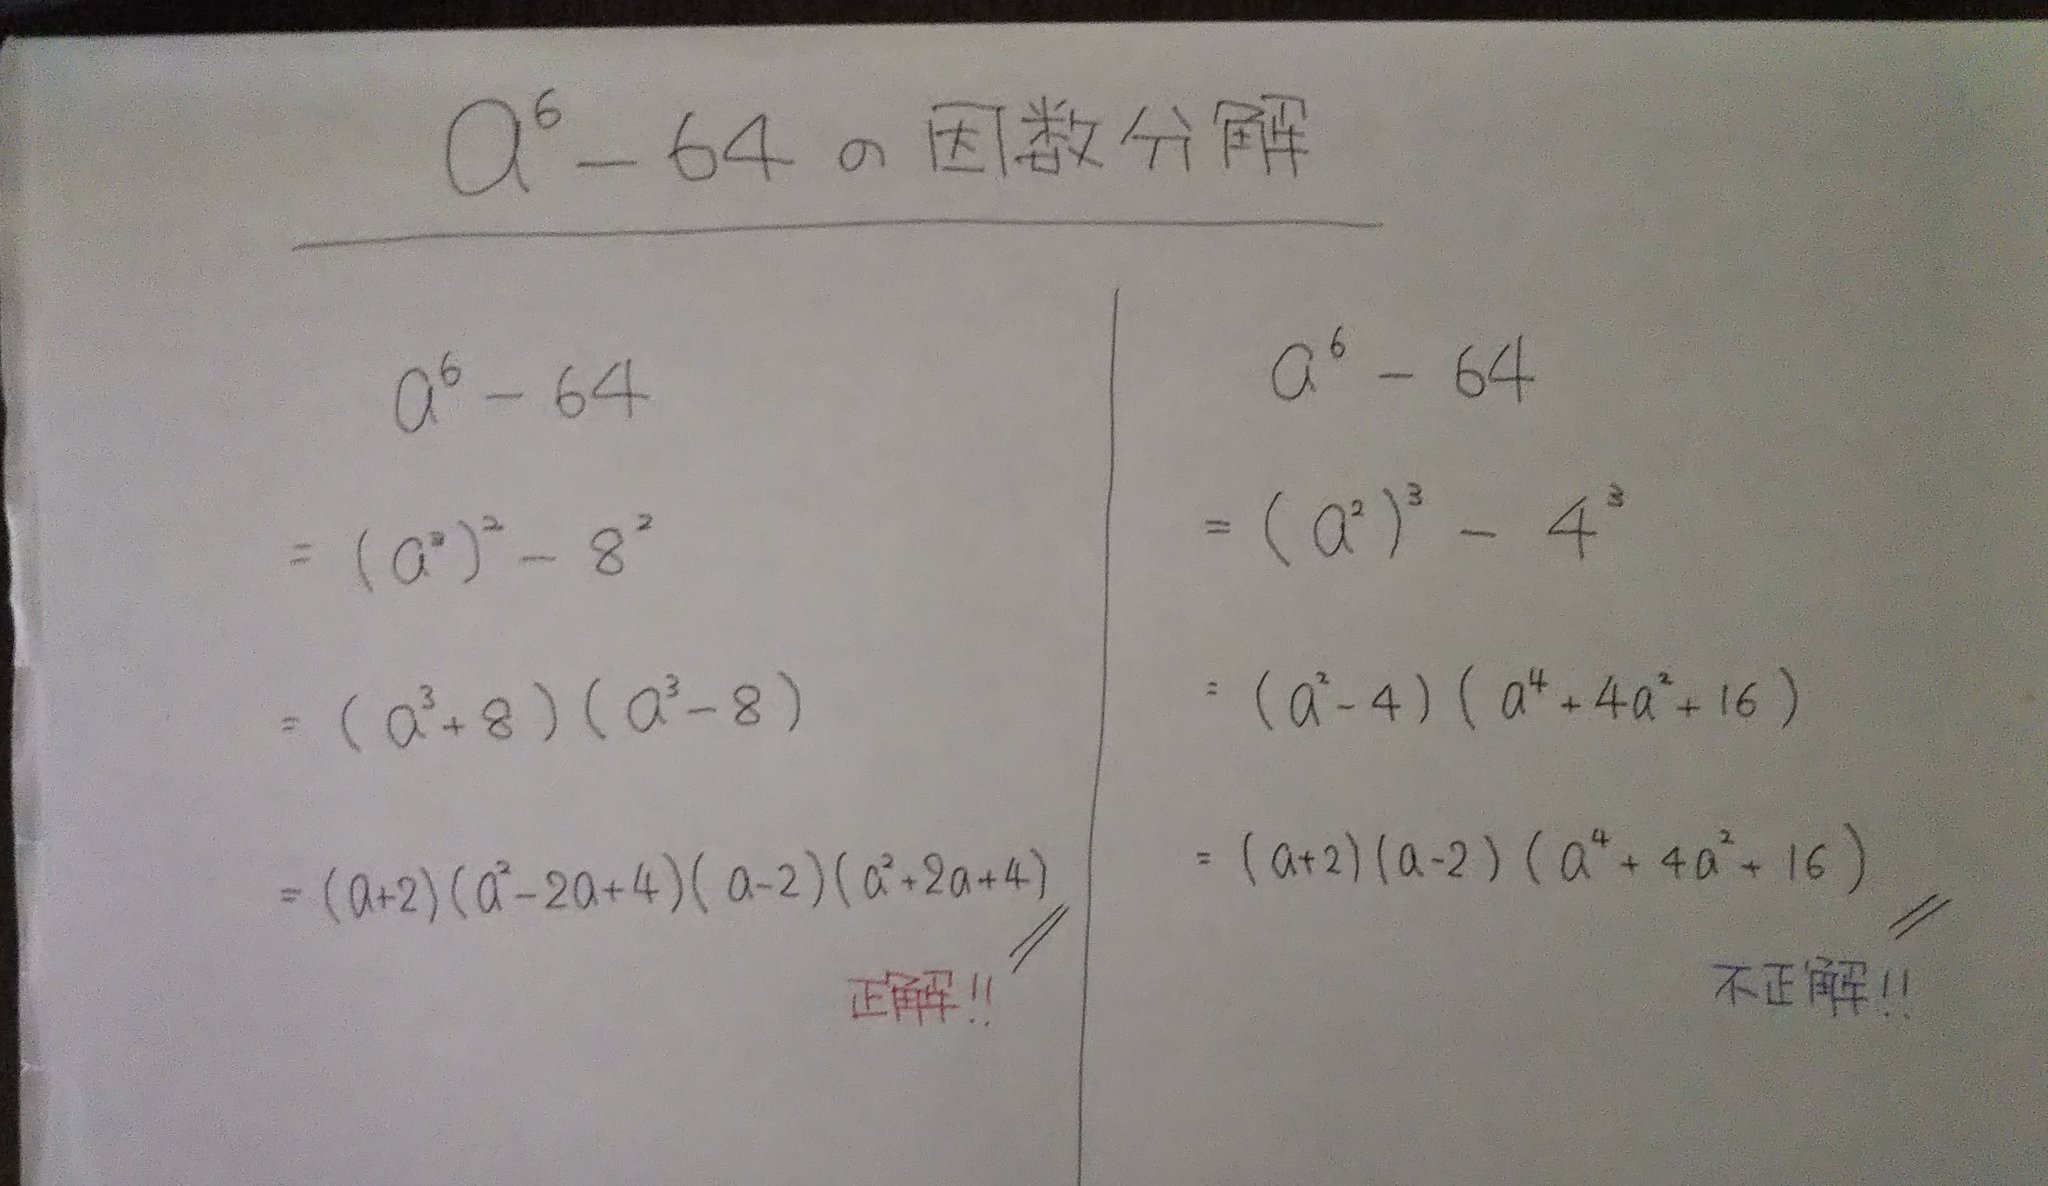 a⁶ - 64 の因数分解
a⁶ - 64
= (a³)² - 8²
= (a³+8)(a³-8)
= (a+2)(a²-2a+4)(a-2)(a²+2a+4)
正解!!
a⁶ - 64
= (a²)³ - 4³
= (a²-4)(a⁴+4a²+16)
= (a+2)(a-2)(a⁴+4a²+16)
不正解!!